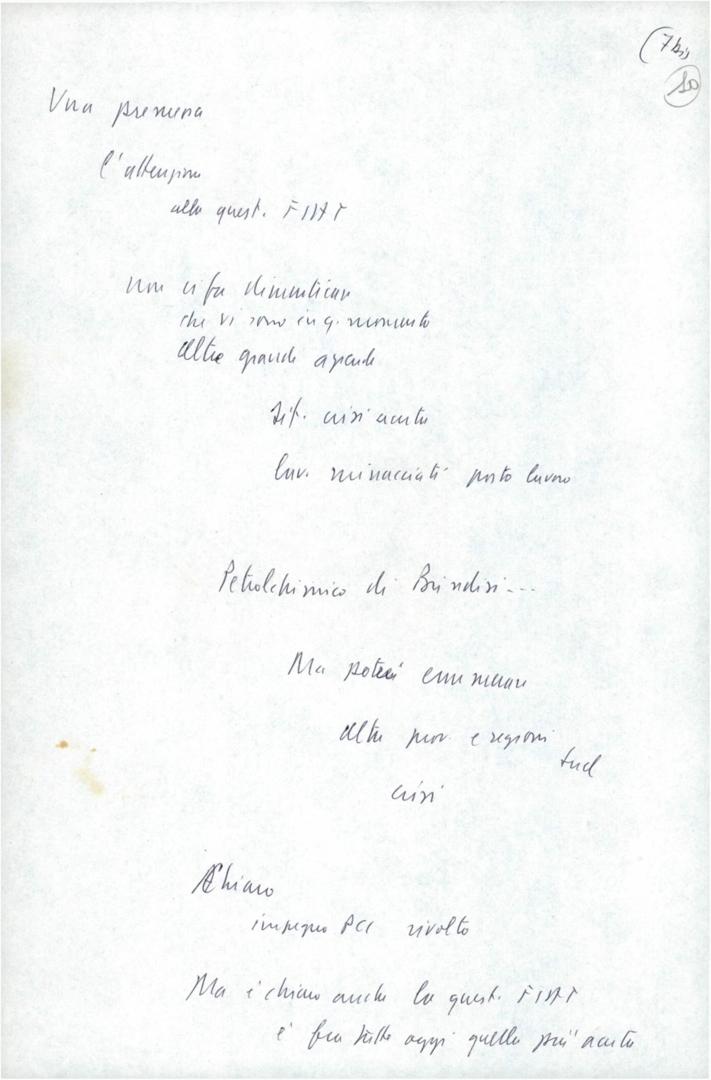 (7 bis
10
Una premessa
l'attenzione
alla quest. FIAT
non ci fa dimenticare
che vi sono in q. momento
altre grande aziende
sit. crisi acuta
lav. minacciati posto lavoro
Petrolchimico di Brindisi...
Ma potrei enumerare
altre prov. e regioni
sud
crisi
Chiaro
impegno PCI rivolto
Ma è chiaro anche la quest. FIAT
è fra tutte oggi quella più acuta